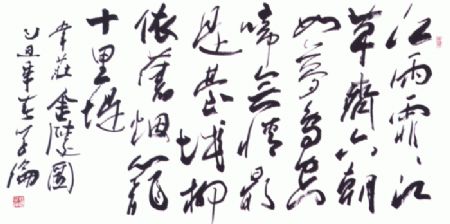 江雨霏〻江
草齊六朝
如夢鳥空
啼無情最
是臺城柳
依舊烟籠
十里堤
韋莊金陵圖
乙丑年